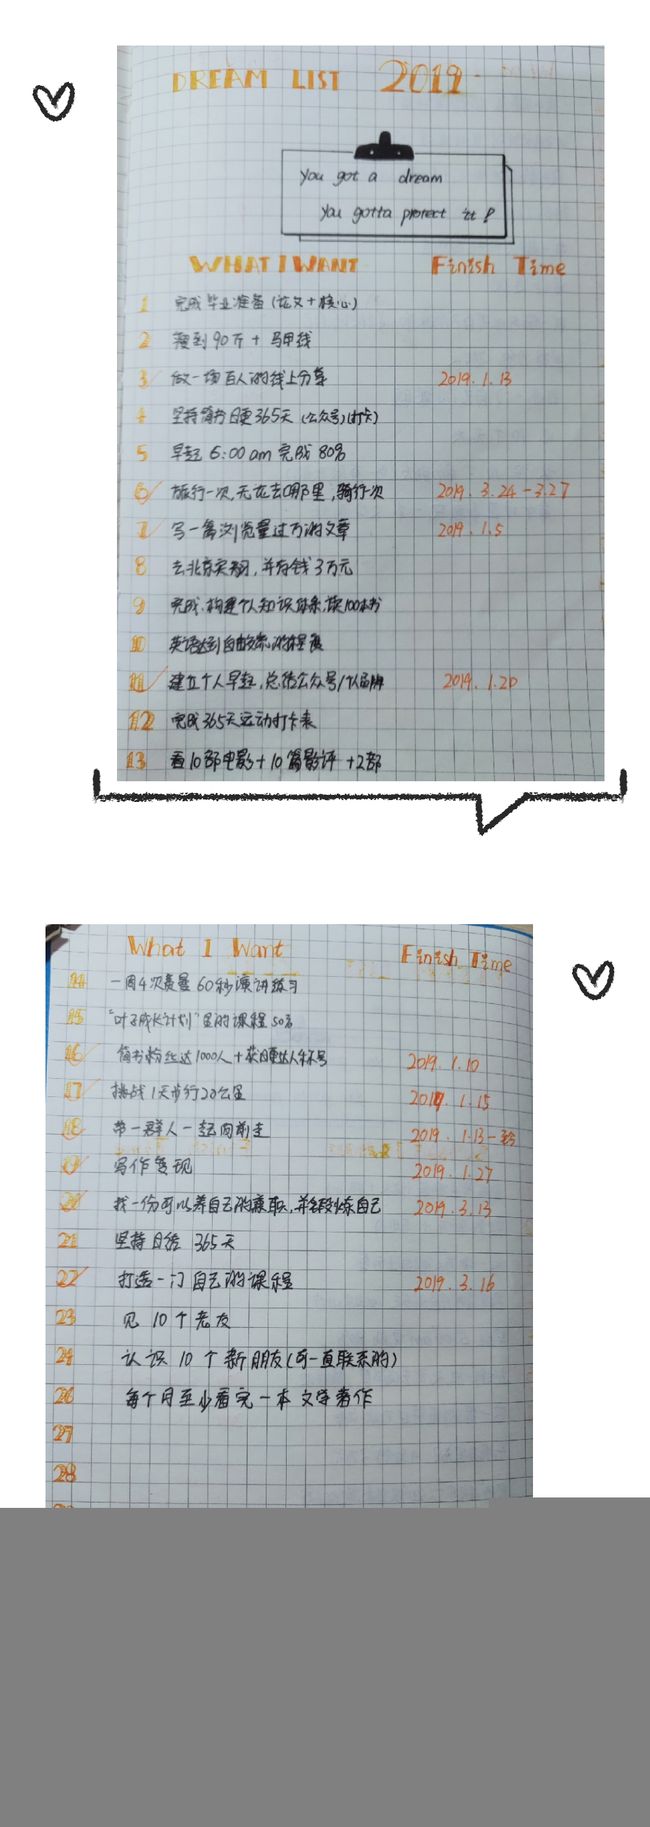 DREAM LIST 2019
You got a dream
You gotta protect it!
WHAT I WANT Finish Time
1 完成毕业准备(论文+核心)
2 瘦到90斤+马甲线
3 做一场百人的线上分享 2019.1.13
4 坚持简书日更365天(公众号)(打卡)
5 早起 6:00 am 完成 80%
6 旅行一次,无论去哪里,骑行一次 2019.3.24-3.27
7 写一篇浏览量过万的文章 2019.1.5
8 去北京实习,并存钱3万元
9 完成、构建个人知识体系,读100本书
10 英语达到自由交流的程度
11 建立个人早起,总结公众号/个人品牌 2019.1.20
12 完成365天运动打卡表
13 看10部电影+10篇影评+2部
What I Want Finish Time
14 一周4次 60秒演讲练习
15 "叶子成长计划"里的课程50%
16 简书粉丝达1000人+获日更达人称号 2019.1.10
17 挑战1天步行20公里 2019.1.15
18 带一群人一起向前走 2019.1.13-
19 写作变现 2019.1.27
20 找一份可以养自己的兼职,并锻炼自己 2019.3.13
21 坚持日结 365天
22 打造一门自己的课程 2019.3.16
23 见10个老友
24 认识10个新朋友(可一直联系的)
26 每个月至少看完一本文学著作
27
28